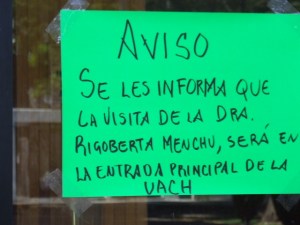 AVISO
SE LES INFORMA QUE
LA VISITA DE LA DRA.
RIGOBERTA MENCHU, SERÁ EN
LA ENTRADA PRINCIPAL DE LA
UACH